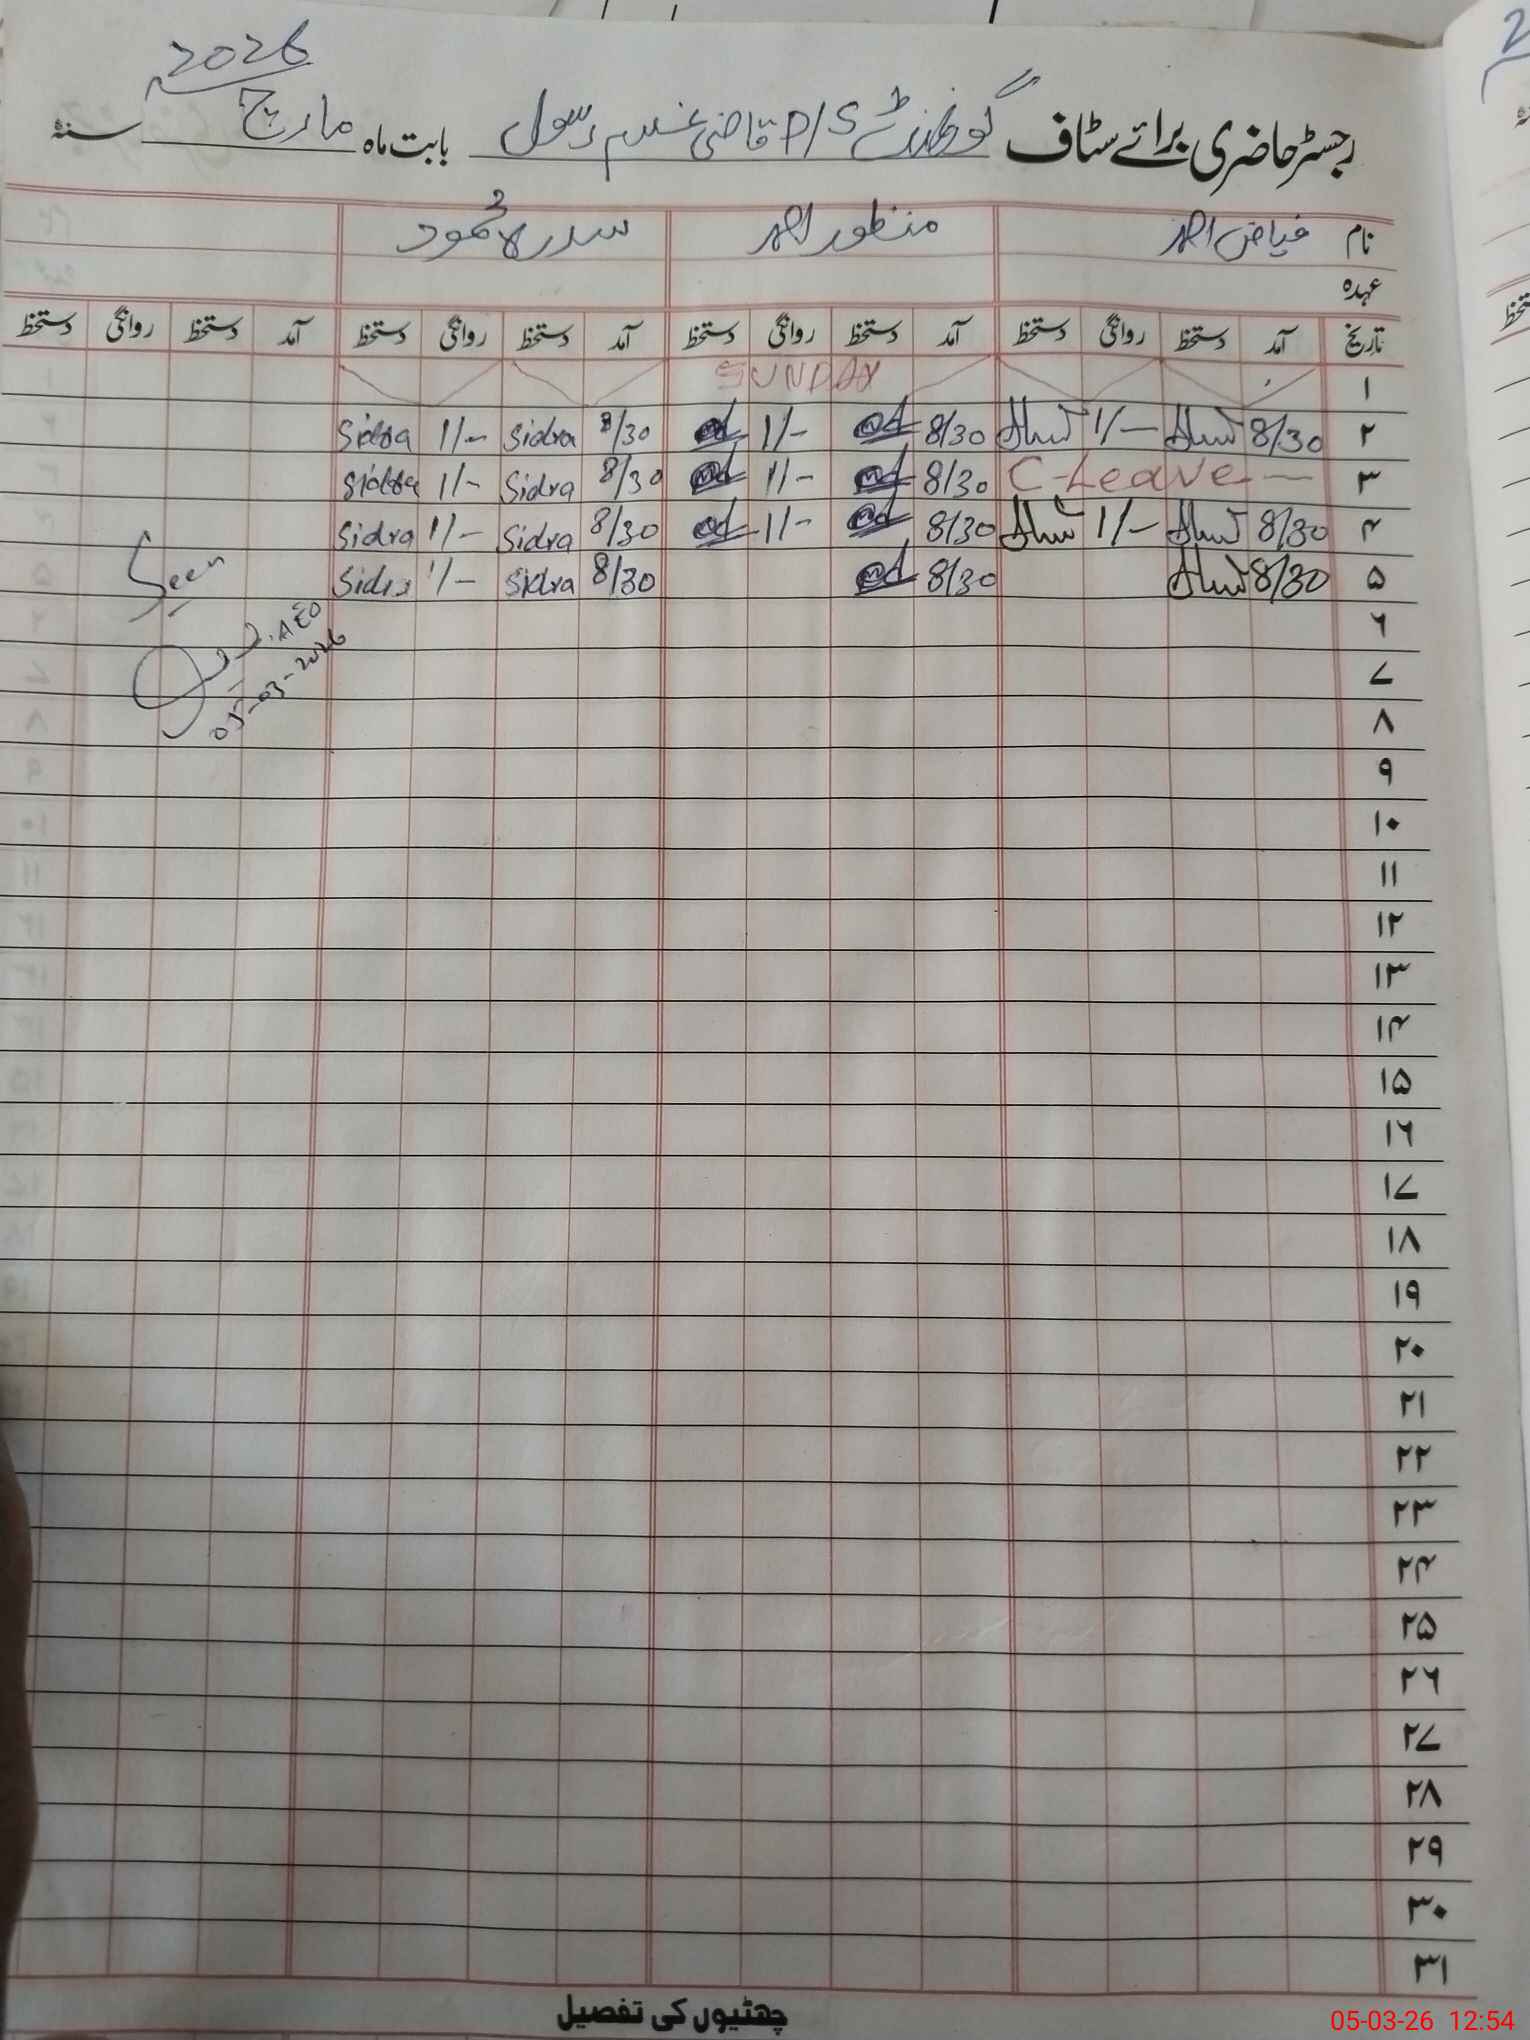 2026
رجسٹر حاضری برائے سٹاف گورنمنٹ P/S قاضی غلام رسول بابت ماہ مارچ سنہ
نام فیاض احمد منظور احمد سدرہ محمود
عہدہ
تاریخ آمد دستخط روانگی دستخط آمد دستخط روانگی دستخط آمد دستخط روانگی دستخط آمد دستخط روانگی دستخط
۱ SUNDAY
۲ 8/30 1/- 8/30 1/- 8/30 Sidra 1/- Sidra
۳ C-Leave 8/30 1/- 8/30 Sidra 1/- Sidra
۴ 8/30 1/- 8/30 1/- 8/30 Sidra 1/- Sidra
۵ 8/30 8/30 8/30 Sidra 1/- Sidra
Seen
۶
AEO
05-03-2026
۷
۸
۹
۱۰
۱۱
۱۲
۱۳
۱۴
۱۵
۱۶
۱۷
۱۸
۱۹
۲۰
۲۱
۲۲
۲۳
۲۴
۲۵
۲۶
۲۷
۲۸
۲۹
۳۰
۳۱
چھٹیوں کی تفصیل
05-03-26 12:54